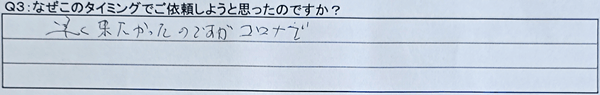 Q3:なぜこのタイミングでご依頼しようと思ったのですか?
早く来たかったのですが コロナで